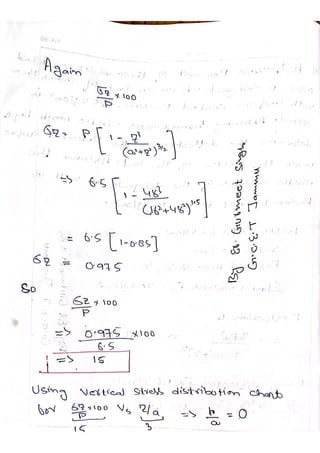 Again
σz/P × 100
σz = P. [1 - z³/(a²+z²)^3/2]
=> 6.5 [1 - 48³/(16²+48²)^1.5]
= 6.5 [1-0.85]
σz = 0.975
So
σz/P × 100
=> 0.975/6.5 × 100
=> 15
Using Vertical Stress distribution chart
for σz/P × 100 Vs z/a => b/a = 0
15 3
By Er. Gurmeet Singh
G.C.E.T Jammu